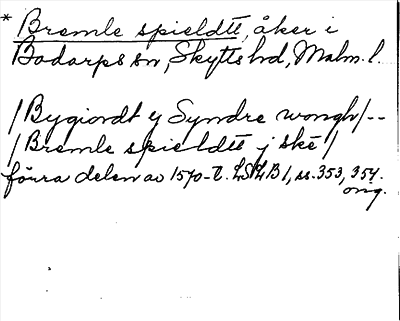 * Bremle spieldtt, åker i
Bodarps sn, Skytts hd, Malm. l.
/Bygiordt ej Syndre wongh/--
/Bremle spieldtt j skē/
förra delen av 1570-t. LSLB 1, ss. 353, 354.
orig.